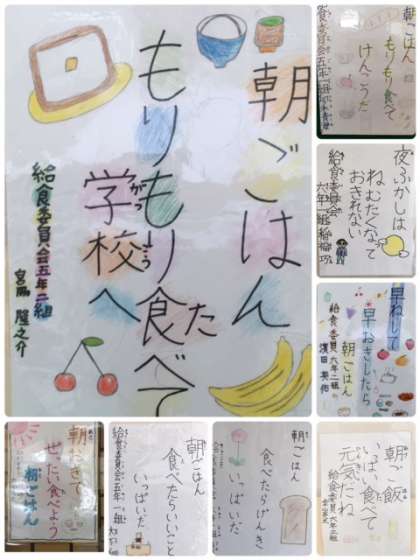 朝ごはん
もりもり食べて
学校へ
がっ
こう
給食委員会五年二組
朝ごはん
もりもり食べて
けんこうだ
夜ふかしは
ねむたくなって
おきれない
給食委員会
早ねして
早おきしたら
朝ごはん
給食委員 六年二組
朝おきて
ぜったい食べよう
朝ごはん
朝ごはん
食べたらいいこと
いっぱいだ
給食委員会五年一組
朝ごはん
食べたらげんき
いっぱいだ
朝ご飯
いっぱい食べて
元気だね